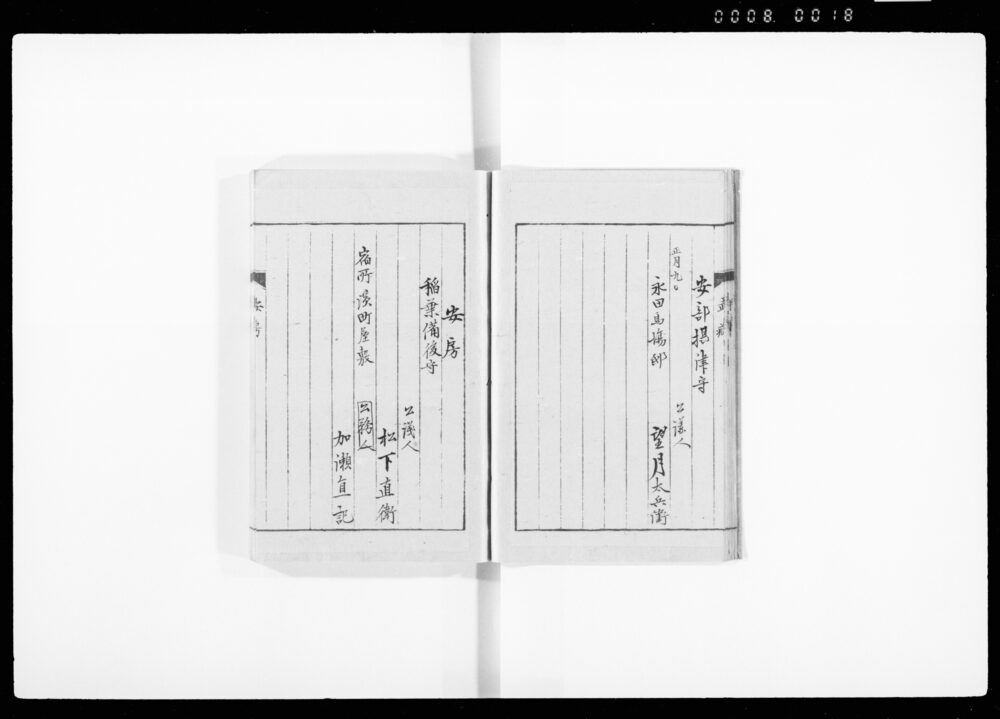 0008 0018
安部摂津守
正月九日
永田馬場邸
公議人
望月太兵衛
安房
稲葉備後守
公議人
松下直衛
宿所濱町屋敷
公務人
加瀬直記
安房